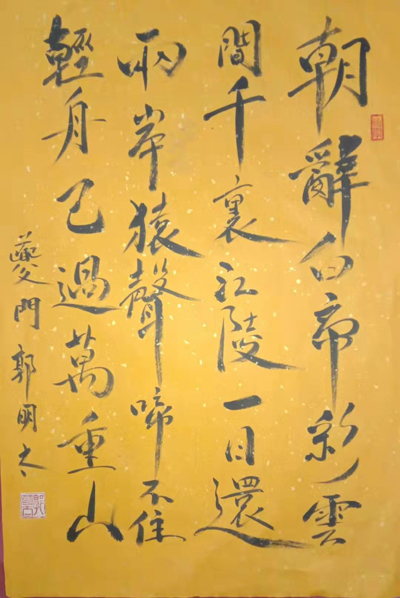 朝辭白帝彩雲
間千裏江陵一日還
兩岸猿聲啼不住
輕舟已過萬重山
夔門郭明太